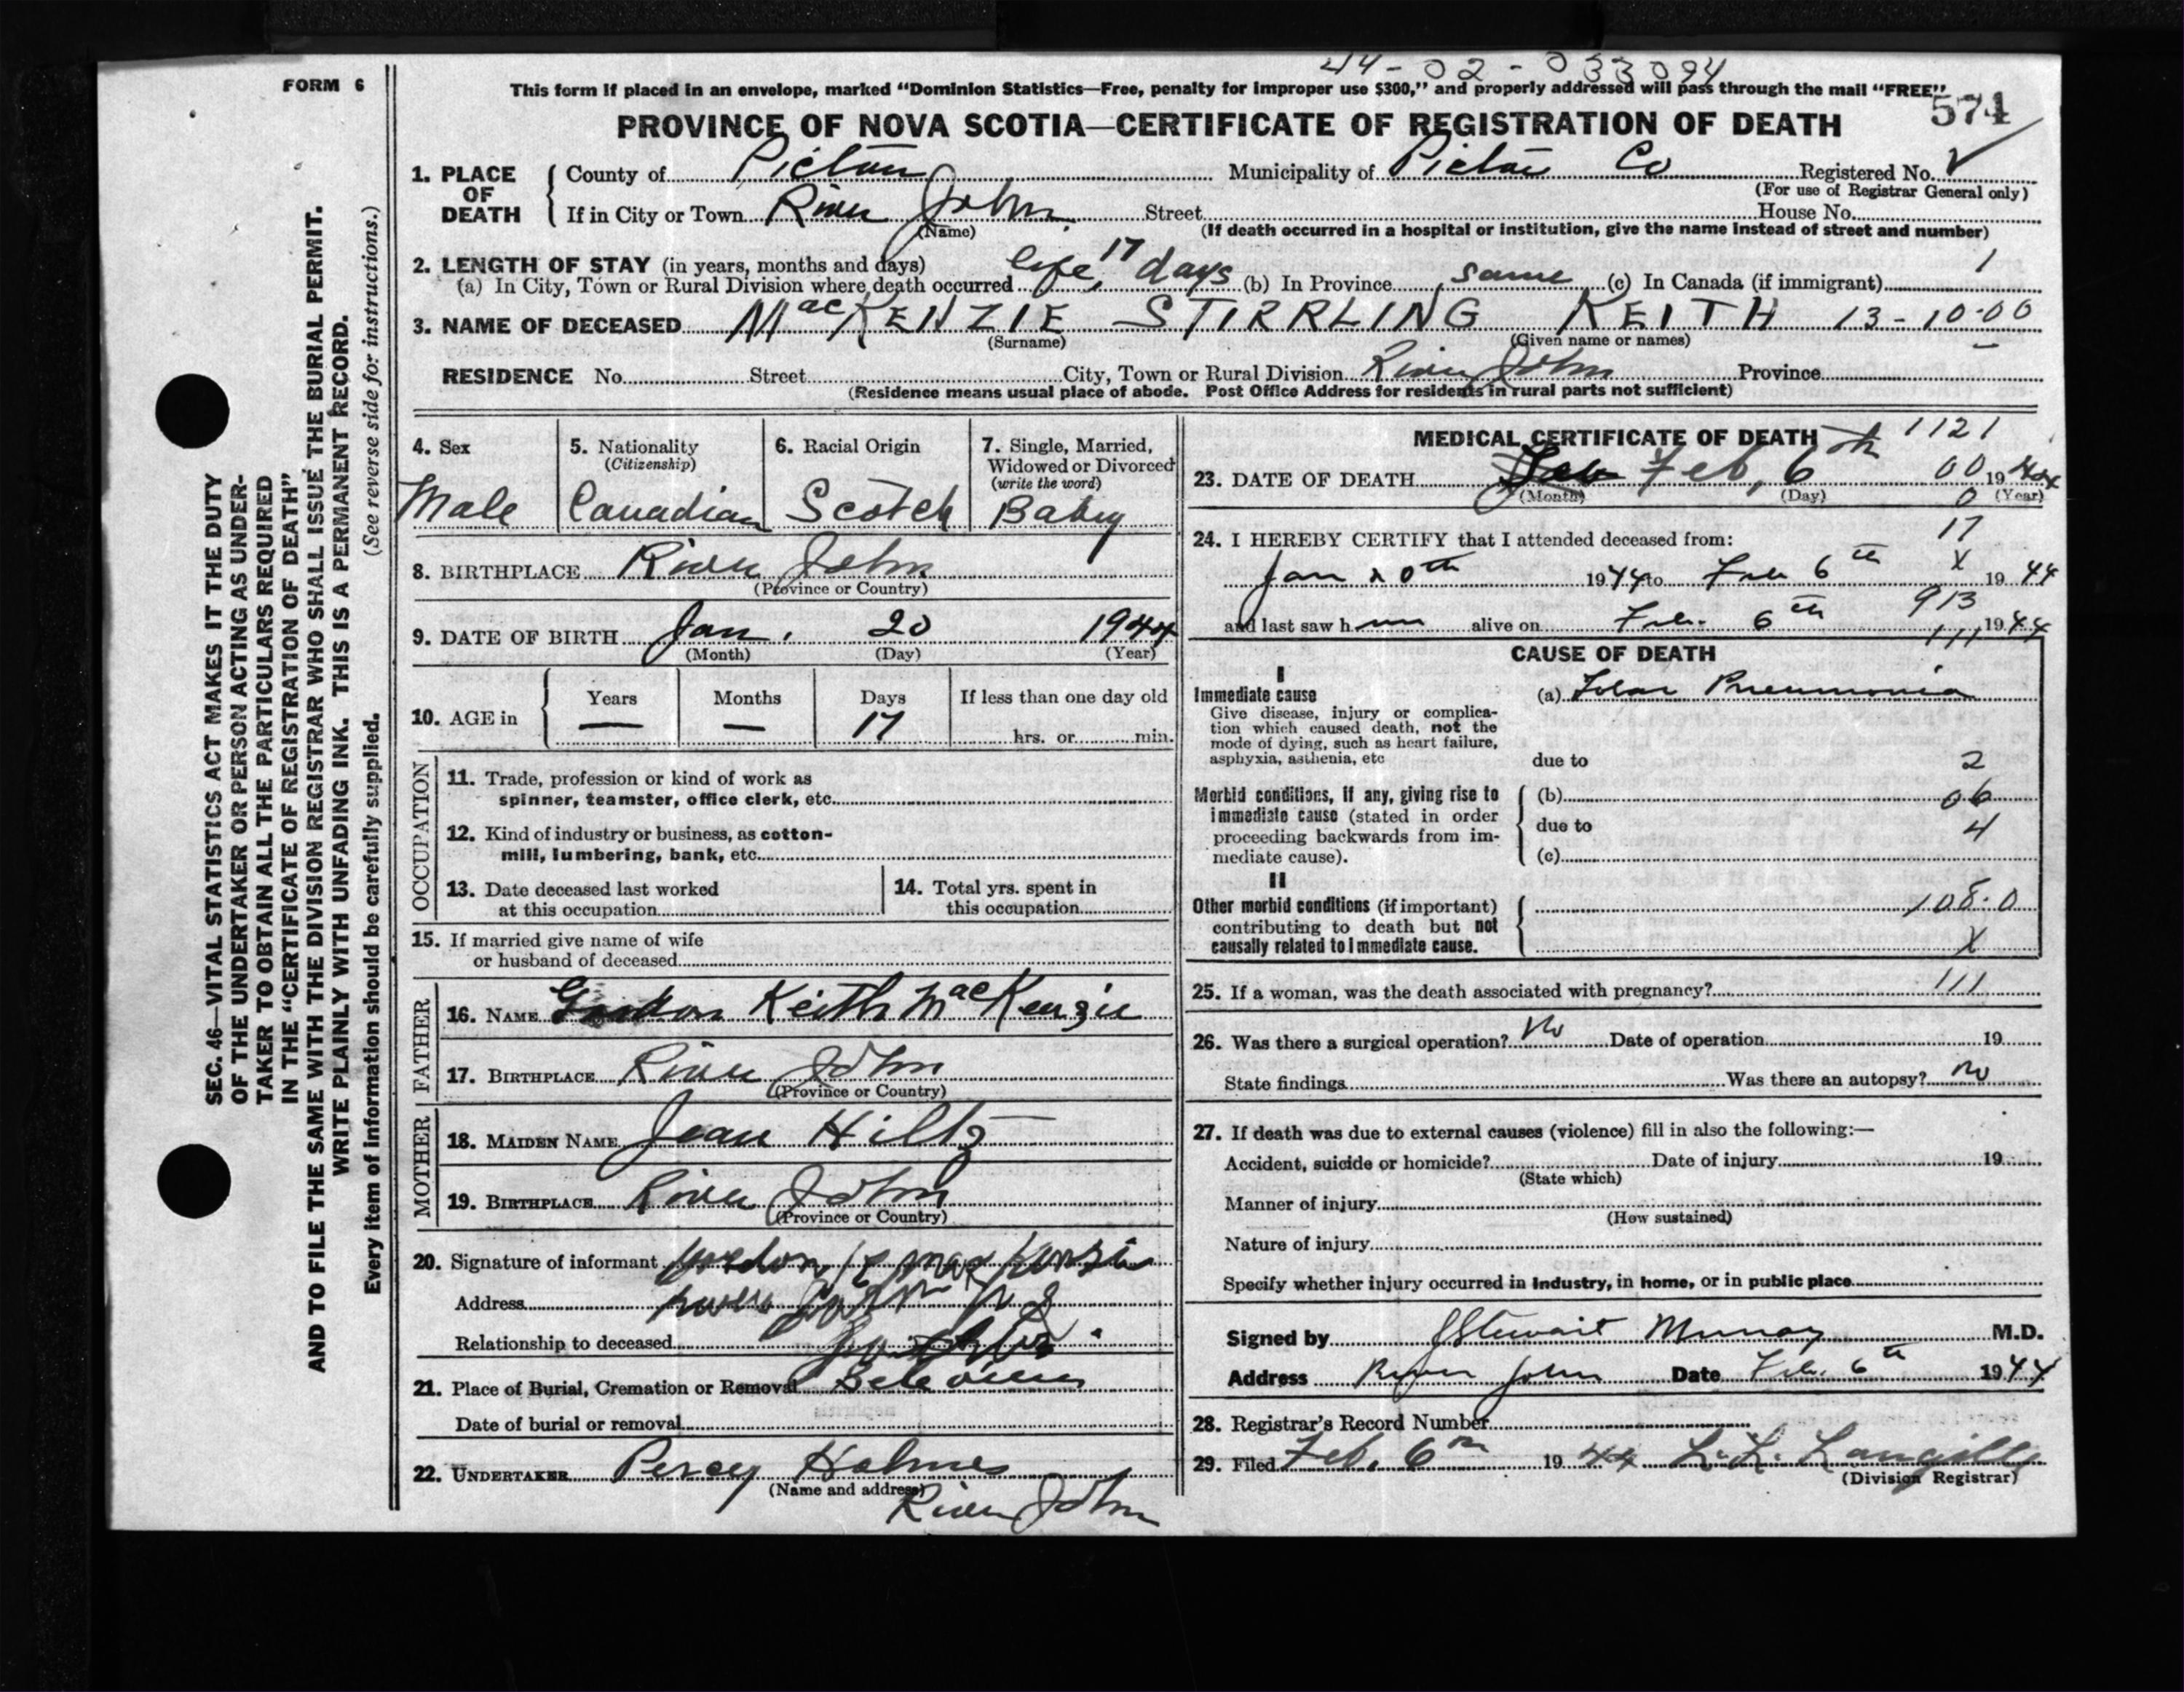 44-02-033094
FORM 6
This form if placed in an envelope, marked “Dominion Statistics—Free, penalty for improper use $300,” and properly addressed will pass through the mail “FREE”
574
PROVINCE OF NOVA SCOTIA—CERTIFICATE OF REGISTRATION OF DEATH
1. PLACE OF DEATH
County of Pictou Municipality of Pictou Co Registered No.
(For use of Registrar General only)
If in City or Town River John Street House No.
(Name) (If death occurred in a hospital or institution, give the name instead of street and number)
2. LENGTH OF STAY (in years, months and days)
(a) In City, Town or Rural Division where death occurred life, 17 days (b) In Province same (c) In Canada (if immigrant) 1
3. NAME OF DECEASED MacKENZIE STIRRLING KEITH 13-10-00
(Surname) (Given name or names)
RESIDENCE No. Street City, Town or Rural Division River John Province
(Residence means usual place of abode. Post Office Address for residents in rural parts not sufficient)
4. Sex
Male
5. Nationality
(Citizenship)
Canadian
6. Racial Origin
Scotch
7. Single, Married,
Widowed or Divorced
(write the word)
Baby
8. BIRTHPLACE River John
(Province or Country)
9. DATE OF BIRTH Jan. 20 1944
(Month) (Day) (Year)
10. AGE in
Years Months Days If less than one day old
— — 17 hrs. or min.
OCCUPATION
11. Trade, profession or kind of work as
spinner, teamster, office clerk, etc.
12. Kind of industry or business, as cotton-
mill, lumbering, bank, etc.
13. Date deceased last worked
at this occupation
14. Total yrs. spent in
this occupation
15. If married give name of wife
or husband of deceased
FATHER
16. NAME Gordon Keith MacKenzie
17. BIRTHPLACE River John
(Province or Country)
MOTHER
18. MAIDEN NAME Jean Hiltz
19. BIRTHPLACE River John
(Province or Country)
20. Signature of informant Gordon K MacKenzie
Address River John N S
Relationship to deceased
21. Place of Burial, Cremation or Removal
Date of burial or removal
22. UNDERTAKER Percy Holmes
(Name and address)
River John
MEDICAL CERTIFICATE OF DEATH 1121
23. DATE OF DEATH Feb, 6th 00 1944
(Month) (Day) 0 (Year)
24. I HEREBY CERTIFY that I attended deceased from: 17
Jan 20th 1944 to Feb 6th X 1944
913
and last saw him alive on Feb. 6th 1944
111
CAUSE OF DEATH
I
Immediate cause
Give disease, injury or complica-
tion which caused death, not the
mode of dying, such as heart failure,
asphyxia, asthenia, etc
(a) Lobar Pneumonia
due to 2
Morbid conditions, if any, giving rise to
immediate cause (stated in order
proceeding backwards from im-
mediate cause).
(b) 06
due to 4
(c)
II
Other morbid conditions (if important)
contributing to death but not
causally related to immediate cause.
108-0
X
25. If a woman, was the death associated with pregnancy? 111
26. Was there a surgical operation? No Date of operation 19
State findings Was there an autopsy? No
27. If death was due to external causes (violence) fill in also the following:—
Accident, suicide or homicide? Date of injury 19
(State which)
Manner of injury
(How sustained)
Nature of injury
Specify whether injury occurred in industry, in home, or in public place
Signed by J Stewart Murray M.D.
Address River John Date Feb. 6th 1944
28. Registrar's Record Number
29. Filed Feb. 6th 1944 L. L. Langille
(Division Registrar)
SEC. 46—VITAL STATISTICS ACT MAKES IT THE DUTY
OF THE UNDERTAKER OR PERSON ACTING AS UNDER-
TAKER TO OBTAIN ALL THE PARTICULARS REQUIRED
IN THE “CERTIFICATE OF REGISTRATION OF DEATH”
AND TO FILE THE SAME WITH THE DIVISION REGISTRAR WHO SHALL ISSUE THE BURIAL PERMIT.
WRITE PLAINLY WITH UNFADING INK. THIS IS A PERMANENT RECORD.
Every item of information should be carefully supplied. (See reverse side for instructions.)